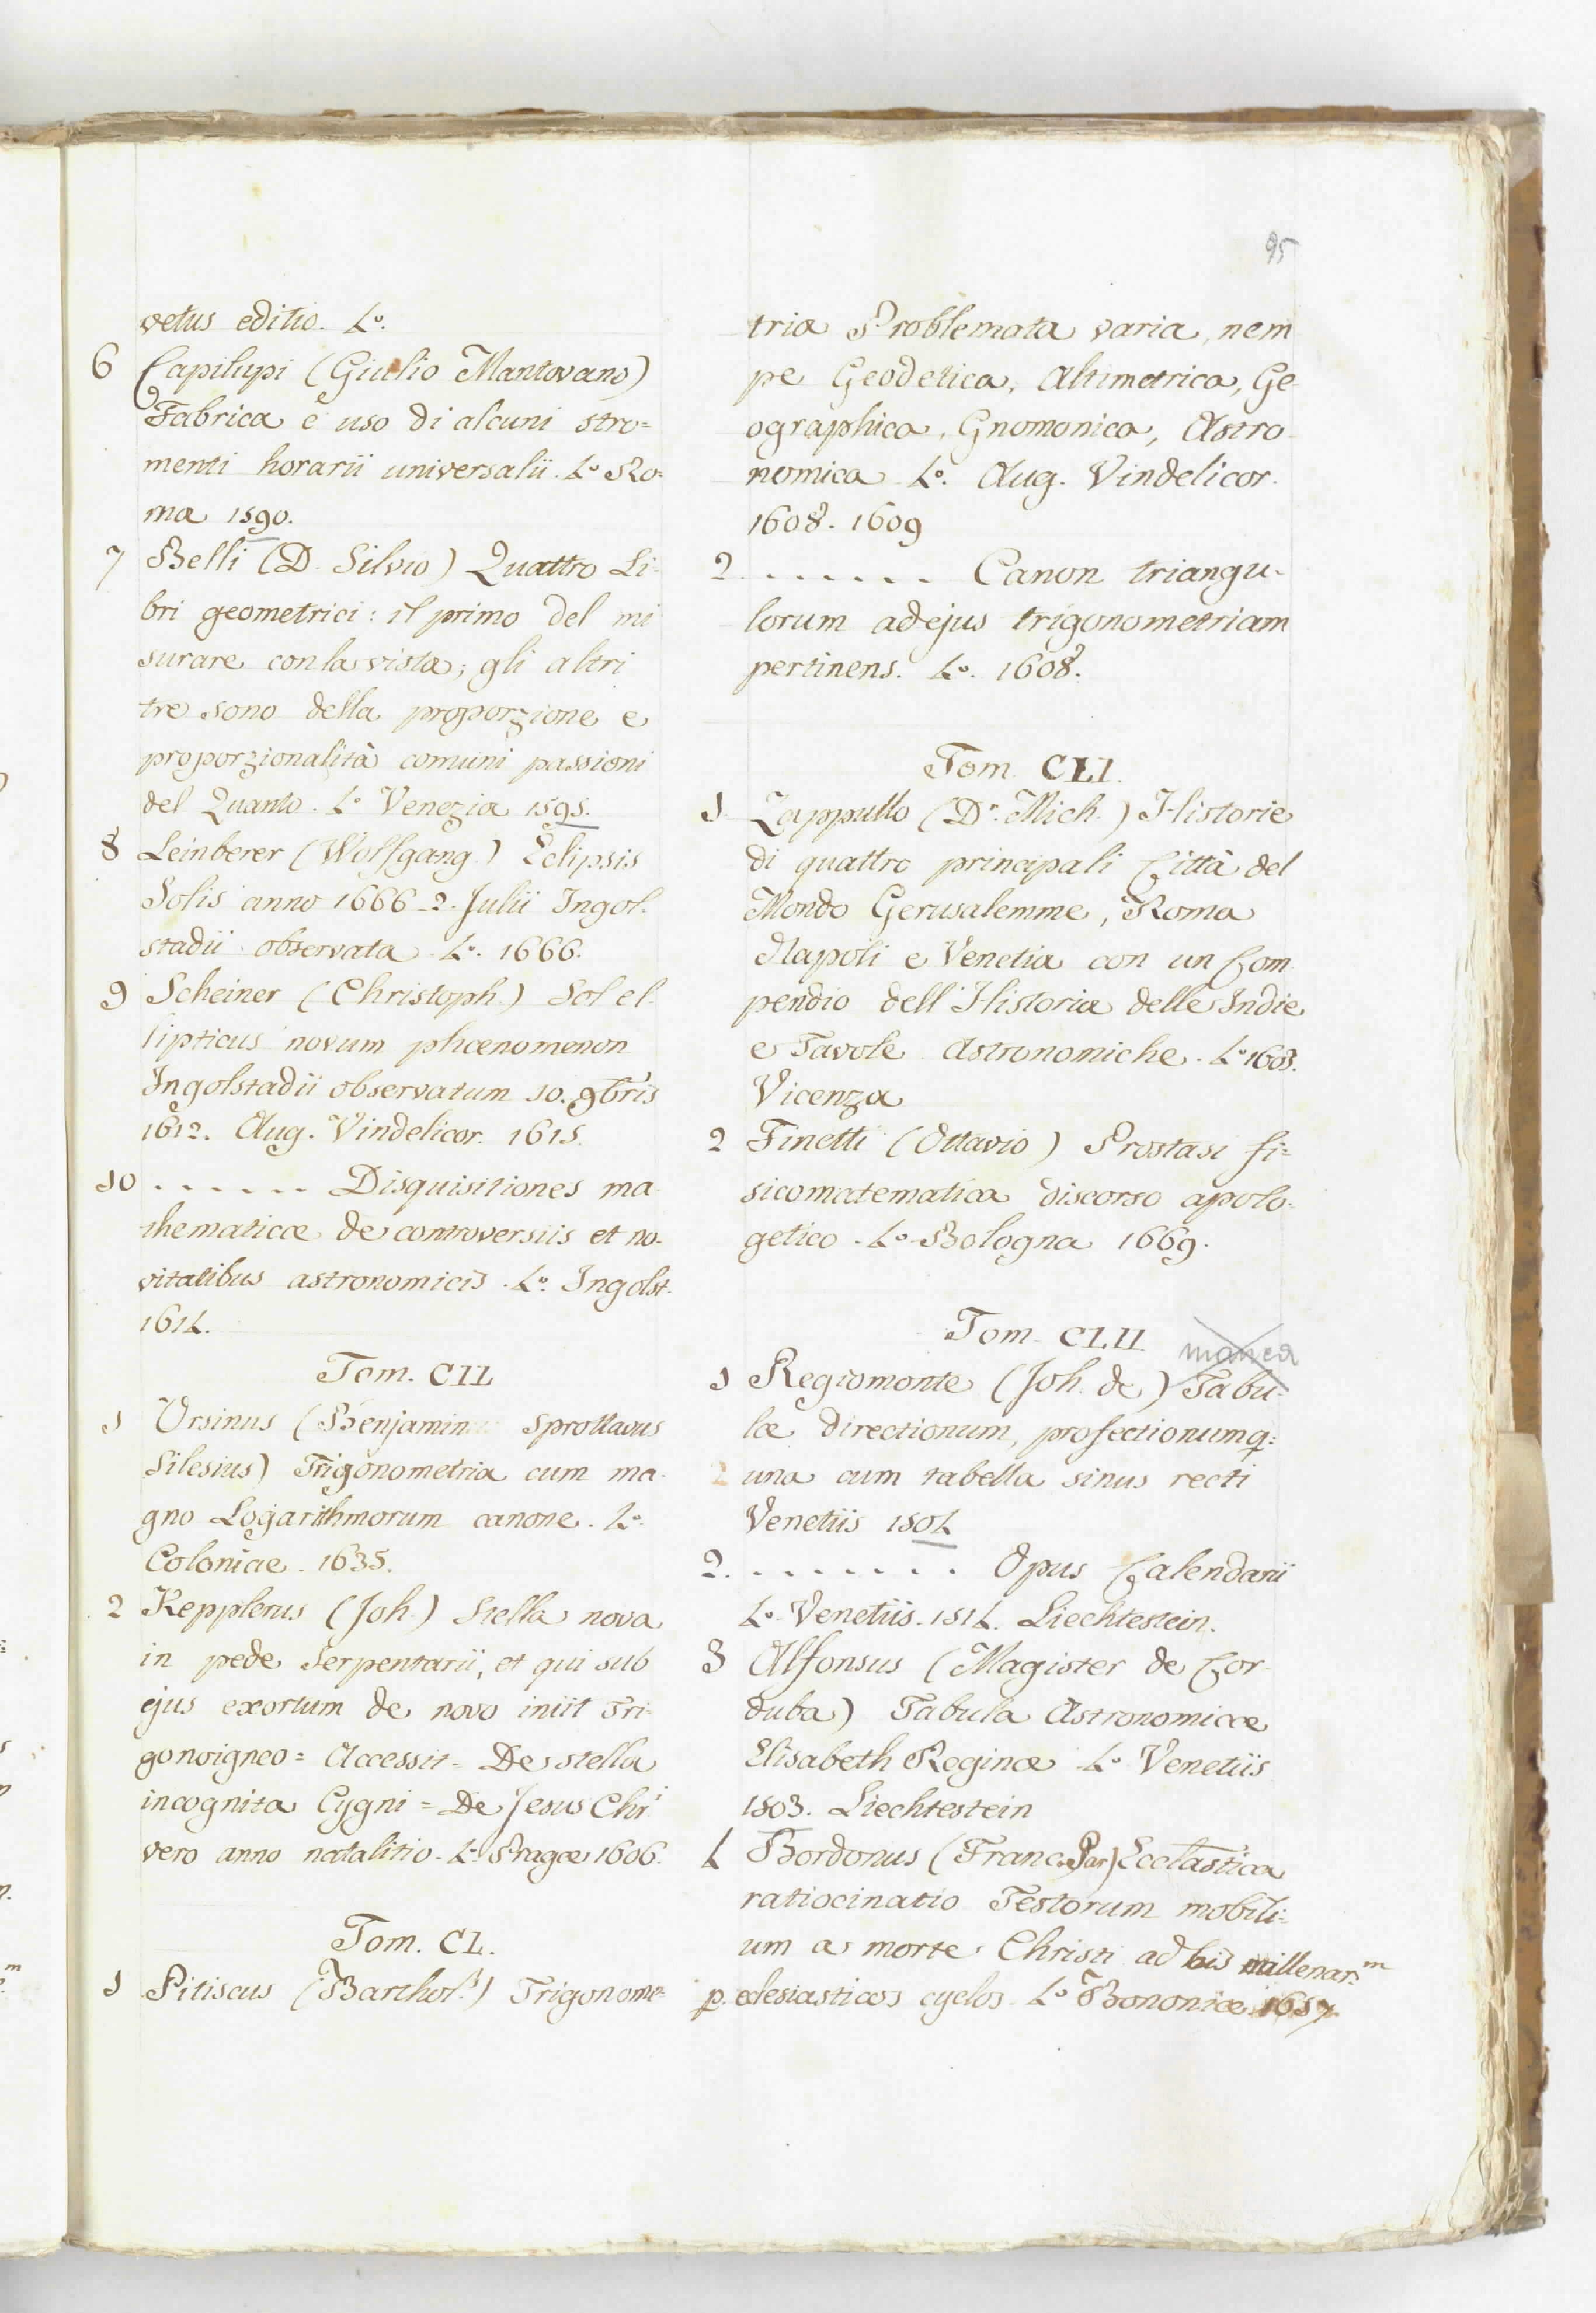 95
vetus editio. 4o.
6 Capilupi (Giulio Mantovano)
Fabrica e uso di alcuni stro=
menti horarii universalii. 4o Ro=
ma 1590.
7 Belli (D. Silvio) Quattro Li-
bri geometrici: il primo del mi
surare con la vista; gli altri
tre sono della proporzione e
proporzionalità comuni passioni
del Quanto. 4o Venezia 1595.
8 Leinberer (Wolfgang.) Eclipsis
Solis anno 1666 2. Julii Ingol-
stadii observata 4o. 1666.
9 Scheiner (Christoph.) Sol el-
lipticus novum phœnomenon
Ingolstadii observatum 10. 9bris
1612. Aug. Vindelicor. 1615.
10 ...... Disquisitiones ma-
thematicæ de controversiis et no-
vitatibus astronomicis. 4o. Ingolst.
1614.
Tom. CIL
1 Ursinus (Benjamin Sprottavus
Silesius) Trigonometria cum ma-
gno Logarithmorum canone. 4o.
Coloniae. 1635.
2 Kepplerus (Joh.) Stella nova
in pede Serpentarii, et qui sub
ejus exortum de novo iniit Tri-
gonoigneo = Accessit = De stella
incognita Cygni = De Jesus Chri
vero anno natalitio. 4o. Pragæ 1606.
Tom. CL.
1 Pitiscus (Barthol.) Trigonome=
tria Problemata varia, nem
pe Geodetica, Altimetrica, Ge-
ographica, Gnomonica, Astro-
nomica 4o. Aug. Vindelicor.
1608. 1609
2 ...... Canon triangu-
lorum ad ejus trigonometriam
pertinens. 4o. 1608.
Tom. CLI.
1 Zappullo (Dr. Mich.) Historie
di quattro principali Città del
Mondo Gerusalemme, Roma
Napoli e Venetia con un Com-
pendio dell'Historia delle Indie
e Tavole Astronomiche. 4o 1603.
Vicenza
2 Finetti (Ottavio) Prostasi fi=
sicomatematica discorso apolo-
getico. 4o Bologna 1669.
Tom. CLII
manca
1 Regiomonte (Joh. de) Tabu-
læ directionum, profectionumq=
2 una cum tabella sinus recti
Venetiis 1504
2. ....... Opus Calendarii
4o Venetiis. 1514. Liechtestein.
3 Alfonsus (Magister de Cor-
duba) Tabula Astronomicæ
Elisabeth Reginæ 4o Venetiis
1503. Liechtestein
4 Bordonus (Franc. Par) Ecclastica
ratiocinatio Testorum mobili=
um a morte Christi ad bis millenar.m
p. eclesiasticos cyclos. 4o Bononiæ 1657.